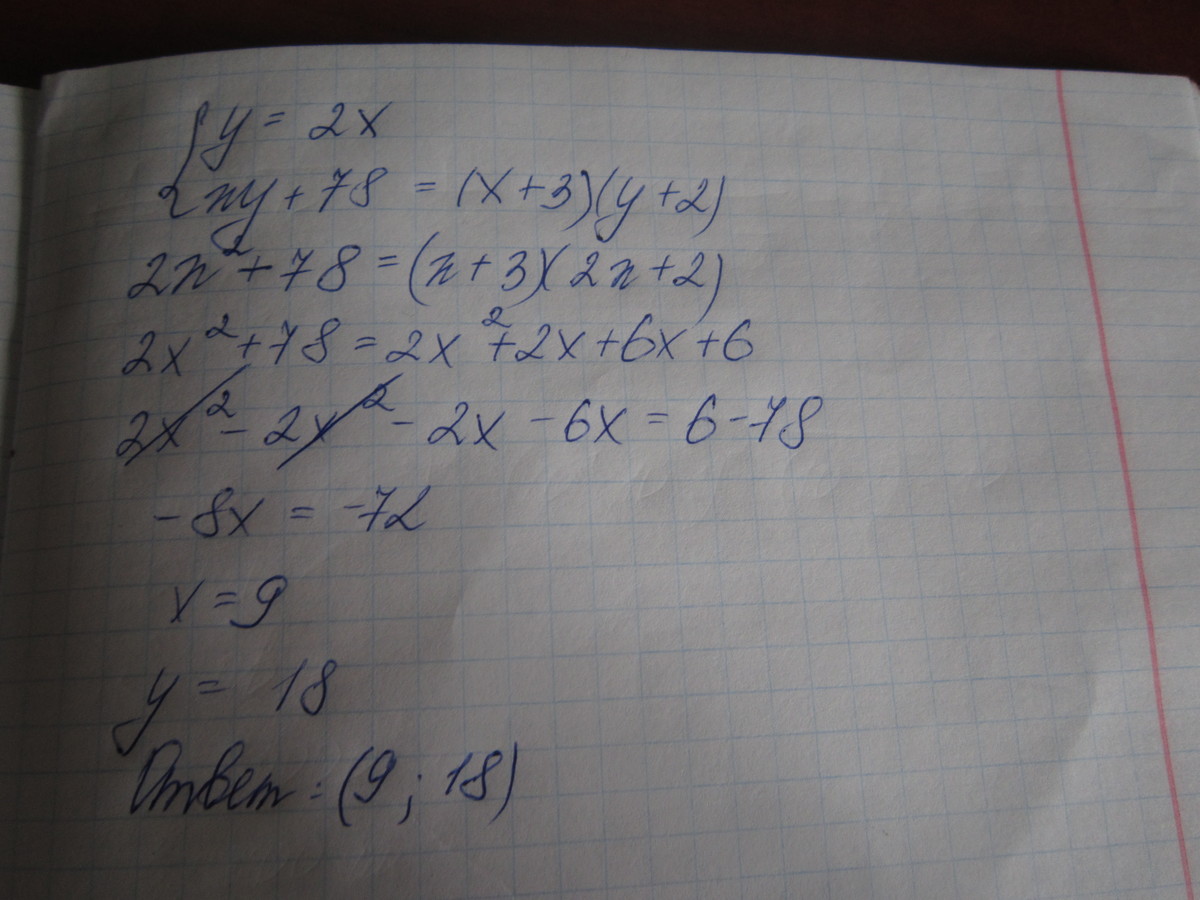 {y = 2x
xy + 78 = (x+3)(y+2)
2x² + 78 = (x+3)(2x+2)
2x² + 78 = 2x² + 2x + 6x + 6
2x² - 2x² - 2x - 6x = 6 - 78
-8x = -72
x = 9
y = 18
Ответ: (9; 18)